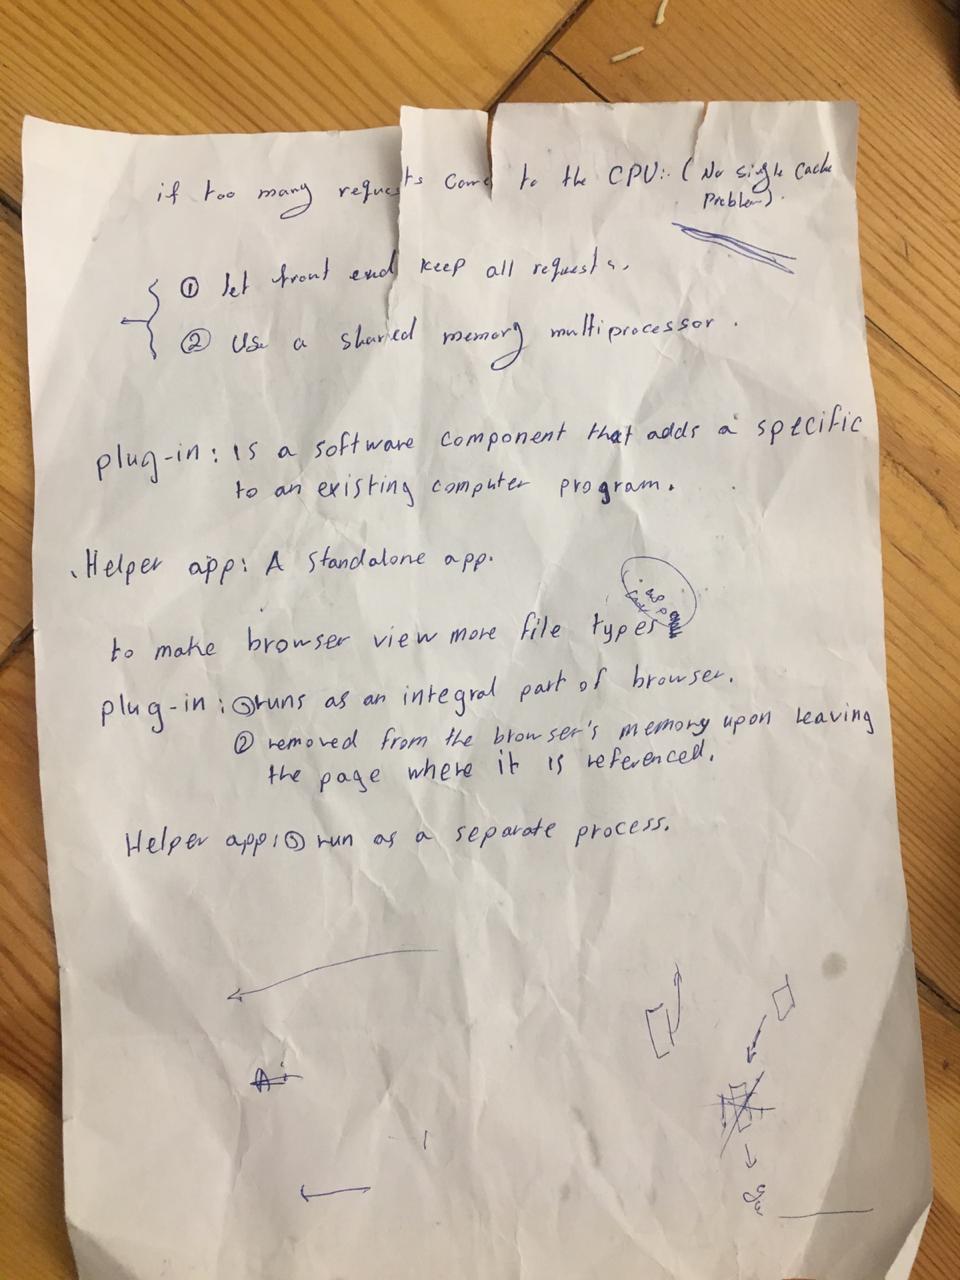 if too many requests come to the CPU: (No single Cache
Problem).
① let front end keep all requests.
② Use a shared memory multiprocessor.
plug-in: is a software component that adds a specific
to an existing computer program.
Helper app: A standalone app.
to make browser view more file types
plug-in: ① runs as an integral part of browser.
② removed from the browser's memory upon leaving
the page where it is referenced.
Helper app: ① run as a separate process.